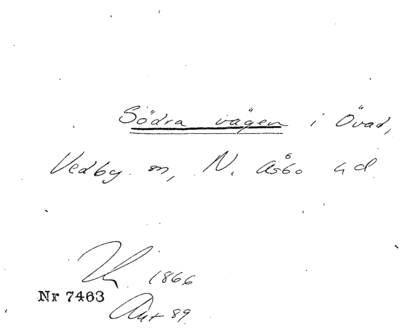 Södra vågen i Övad,
Vedby sn, N. Åsbo hd
1866
Nr 7463
Ант 89